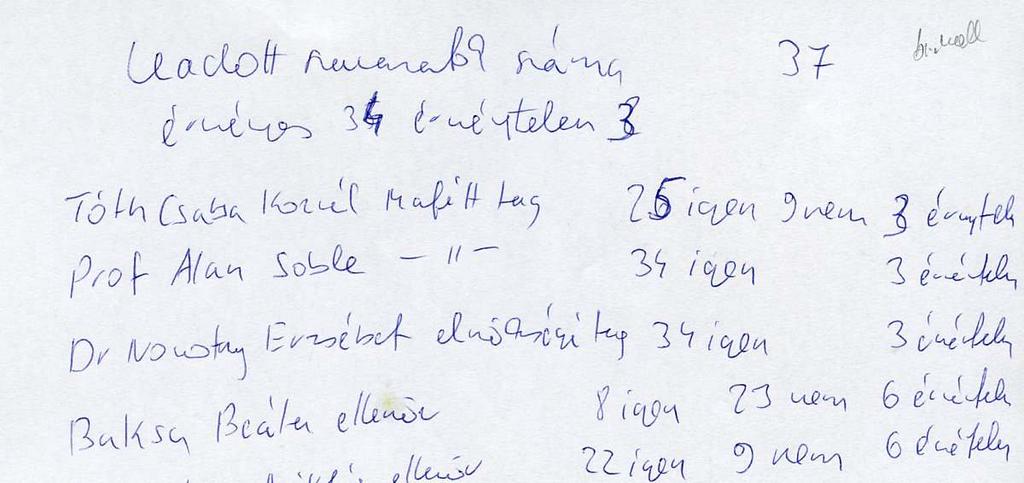 Leadott szavazatok száma 37
érvényes 34 érvénytelen 3
Tóth Csaba tag 25 igen 9 nem 3 érvnytel
Prof Alan Soble — 〃 — 34 igen 3 érvénytelen
Dr Novotny Erzsébet elnökségi tag 34 igen 3 érvénytelen
Baksa Beáta ellenőr 8 igen 23 nem 6 érvénytelen
ellenőr 22 igen 9 nem 6 érvénytelen